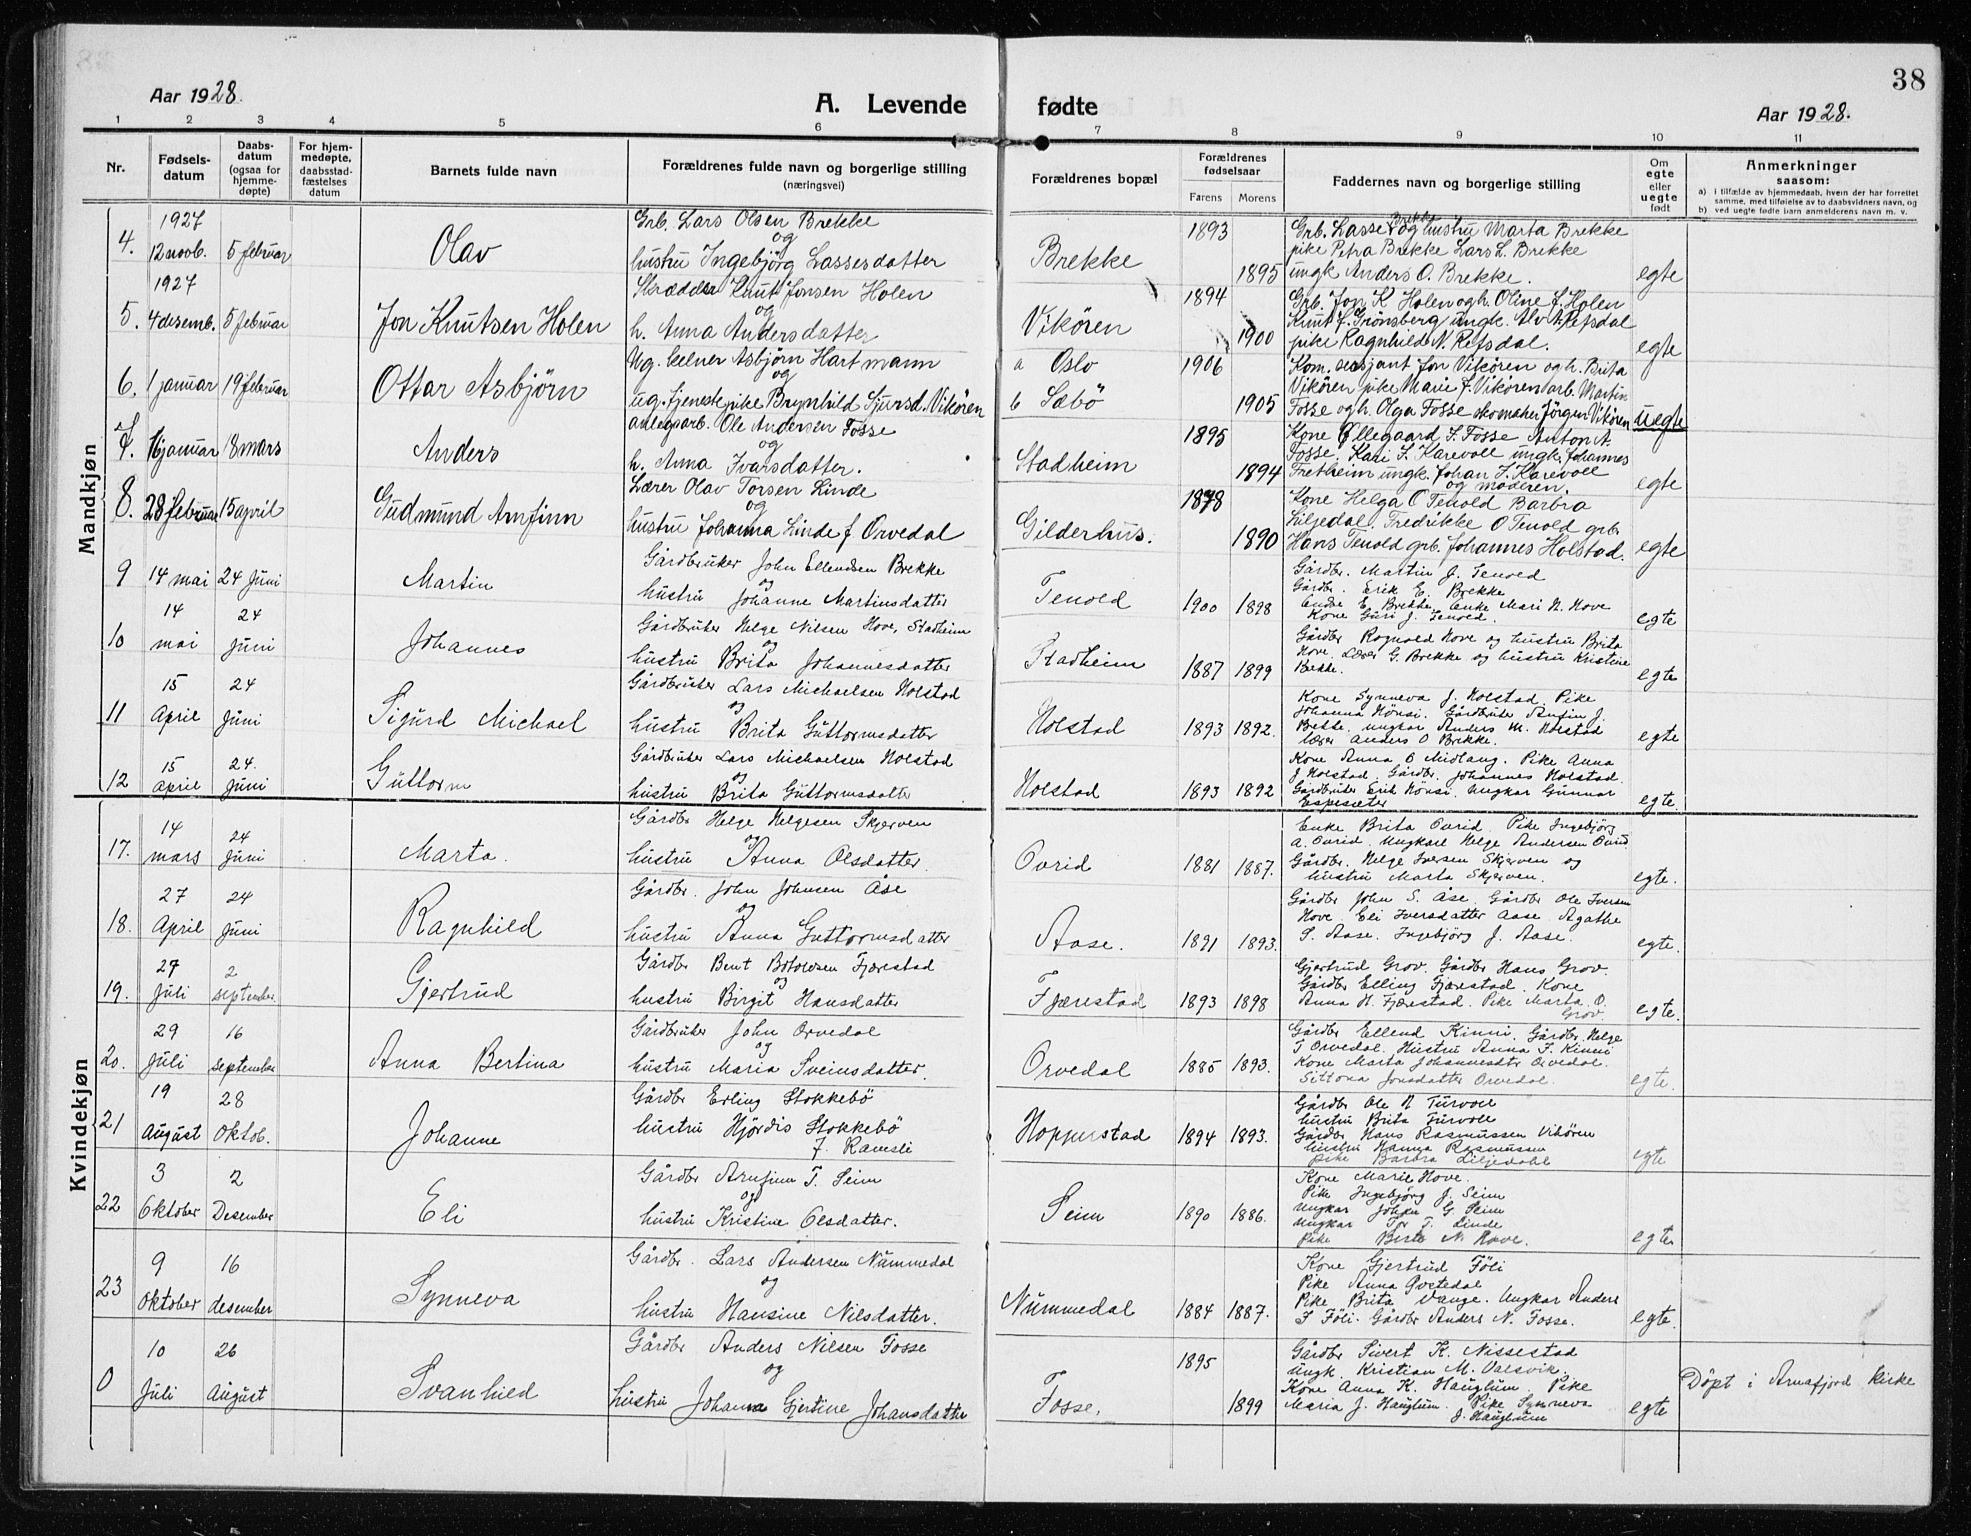 38
Aar 1928.
A. Levende fødte
Aar 1928.
1 2 3 4 5 6 7 8 9 10 11
Nr. Fødselsdatum Daabsdatum (ogsaa for hjemmedøpte) For hjemmedøpte, daabsstadfæstelses datum Barnets fulde navn Forældrenes fulde navn og borgerlige stilling (næringsvei) Forældrenes bopæl Forældrenes fødselsaar Farens Morens Faddernes navn og borgerlige stilling Om egte eller uegte født Anmerkninger saasom:
a) i tilfælde av hjemmedaab, hvem der har forrettet samme, med tilføielse av to daabsvidners navn, og
b) ved uegte fødte barn anmelderens navn m. v.
Mandkjøn
4. 1927 12 novb. 5 februar Olav
Grb. Lars Olsen Brekke
og
hustru Ingebjörg Lassesdatter
Brekke 1893 1895
Grb. Lasse Brekke og hustru Marta Brekke
pike Petra Brekke Lars L. Brekke
ungk Anders O. Brekke.
egte
5. 1927 4 desemb. 5 februar Jon Knutsen Holen
Skrædder Knut Jonsen Holen
og
h. Anna Andersdatter
Vikören 1894 1900
Grb. Jon K Holen og h. Oline J. Holen
Knut J. Grönsberg ungk. Alv A. Refsdal
pike Ragnhild N. Refsdal.
egte
6. 1 januar 19 februar Ottar Asbjørn
Ug. Celner Asbjørn Hartmann
og
ug. tjenestepike Brynhild Sjursd. Vikören
a Oslo
b Sæbö
1906 1905
Kom. sersjant Jon Vikören og h. Brita
Vikören pike Marie J. Vikören arb. Martin
Fosse og h. Olga Fosse skomaker Jörgen Vikören
uegte
7. 16 januar 18 mars Anders
anlegsarb. Ole Andersen Fosse
og
h. Anna Ivarsdatter.
Stadheim 1895 1894
Kone Øllegaard I. Fosse Anton A.
Fosse. Kari I. Karevoll ungk. Johannes
Fretheim ungk. Johan I. Karevoll
og moderen.
egte
8. 28 februar 15 april Gudmund Arnfinn
Lærer Olav Torsen Linde
og
hustru Johanna Linde f Orvedal
Gilderhus. 1878 1890
Kone Helga O Tenold Barbra
Liljedal. Fredrikke O Tenold grb.
Hans Tenold grb. Johannes Holstad.
egte
9 14 mai 24 Juni Martin
Gårdbruker John Ellendsen Brekke
og
hustru Johanne Martinsdatter
Tenold 1900 1898
Gårdbr. Martin J. Tenold
Gårdbr. Erik E. Brekke
Andre E. Brekke. Enke Mari N. Hove
Kone Guri J. Tenold.
egte
10 14 mai 24 Juni Johannes
Gårdbruker Helge Nilsen Hove, Stadheim
og
hustru Brita Johannesdatter
Stadheim 1887 1899
Gårdbr Ragnvald Hove og hustru Brita
Hove. Lærer G. Brekke og hustru Kristine
Brekke.
egte
11 15 April 24 Juni Sigurd Michael
Gårdbruker Lars Michaelsen Holstad
og
hustru Brita Guttormsdatter
Holstad 1893 1892.
Kone Synneva J. Holstad, Pike
Johanna Hönsi. Gårdbruker Anfin J.
Brekke. ungkar Anders M. Holstad
lærer Anders O Brekke.
egte
12 15 April 24. Juni Guttorm
Gårdbruker Lars Michaelsen Holstad
og
hustru Brita Guttormsdatter
Holstad 1893 1892
Kone Anna O Midlang. Pike Anna
J Holstad. Gårdbr. Johannes Holstad.
Gårdbruker Erik Hönsi. Ungkar Gunnar
Espeseter
egte.
Kvindekjøn
17. 14 mars 24 Juni Marta.
Gårdbr Helge Helgesen Skjerven
og
hustru Anna Olsdatter
Ovrid 1881 1887.
Enke Brita Ovrid. Pike Ingebjörg
A. Ovrid. Ungkarl Helge Andersen Ovrid
Gårdbr. Helge Iversen Skjerven og
hustru Marta Skjerven.
egte.
18. 27 April 24 Juni Ragnhild
Gårdbr. John Johnsen Åse
og
hustru Anna Guttormsdatter
Aase. 1891 1893.
Gårdbr John S. Åse. Gårdbr Ole Iversen
Hove. Eli Iversdatter Aase. Agathe
S. Aase. Ingebjörg J. Aase.
egte.
19. 27 Juli 2 september Gjertrud
Gårdbr Bent Botolvsen Fjærestad
og
hustru Birgit Hansdatter
Fjærestad 1893 1898
Gjertrud Grov. Gårdbr Hans Grov.
Gårdbr Elling Fjærestad. Kone
Anna H. Fjærestad. Pike Marta O.
Grov.
egte.
20. 29 Juli 16 september Anna Bertina
Gårdbruker John Orvedal
og
hustru Maria Sveinsdatter.
Orvedal 1885 1893.
Gårdbr Ellend Kinni. Gårdbr. Helge
T Orvedal. Hustru Anna J. Kinni
Kone Marta Johannesdtr Orvedal.
Sittona Jonsdatter Orvedal.
egte.
21 19 August 28 Oktob. Johanne
Gårdbr Erling Stokkebö
hustru Hjördis Stokkebö
f. Ramsli
Hopperstad 1894 1893.
Gårdbr Ole N Turvoll
hustru Brita Turvoll
Gårdbr Hans Rasmussen Vikören
hustru Hanna Rasmussen
pike Barbra Liljedahl
egte
22 3 Oktober 2 Desember Eli
Gårdbr Arnfinn T. Seim
og
hustru Kristine Olsdatter.
Seim 1890 1886.
Kone Marie Hove.
Pike Ingebjörg J. Seim
Ungkar Johan G. Seim
Ungkar Tor T. Linde
Pike Berte N. Hove.
egte
23 9 Oktober 16 desember Synneva
Gårdbr. Lars Andersen Nummedal
og
hustru Hansine Nilsdatter.
Nummedal 1884 1887.
Kone Gjertrud Föli
Pike Anna Qvetedal
Pike Brita Vange. Ungkar Anders
I Föli. Gårdbr Anders N. Fosse.
egte.
0 10 Juli 26 August Svanhild
Gårdbr Anders Nilsen Fosse
og
hustru Johanna Gjertine Johansdatter
Fosse. 1895 1899
Gårdbr Sivert K. Nissestad
Ungk. Kristian M. Valsvik.
Kone Anna K. Hauglum. Pike
Maria J. Hauglum. Pike Synneva
J. Hauglum
egte
Döpt i Arnafjord kirke